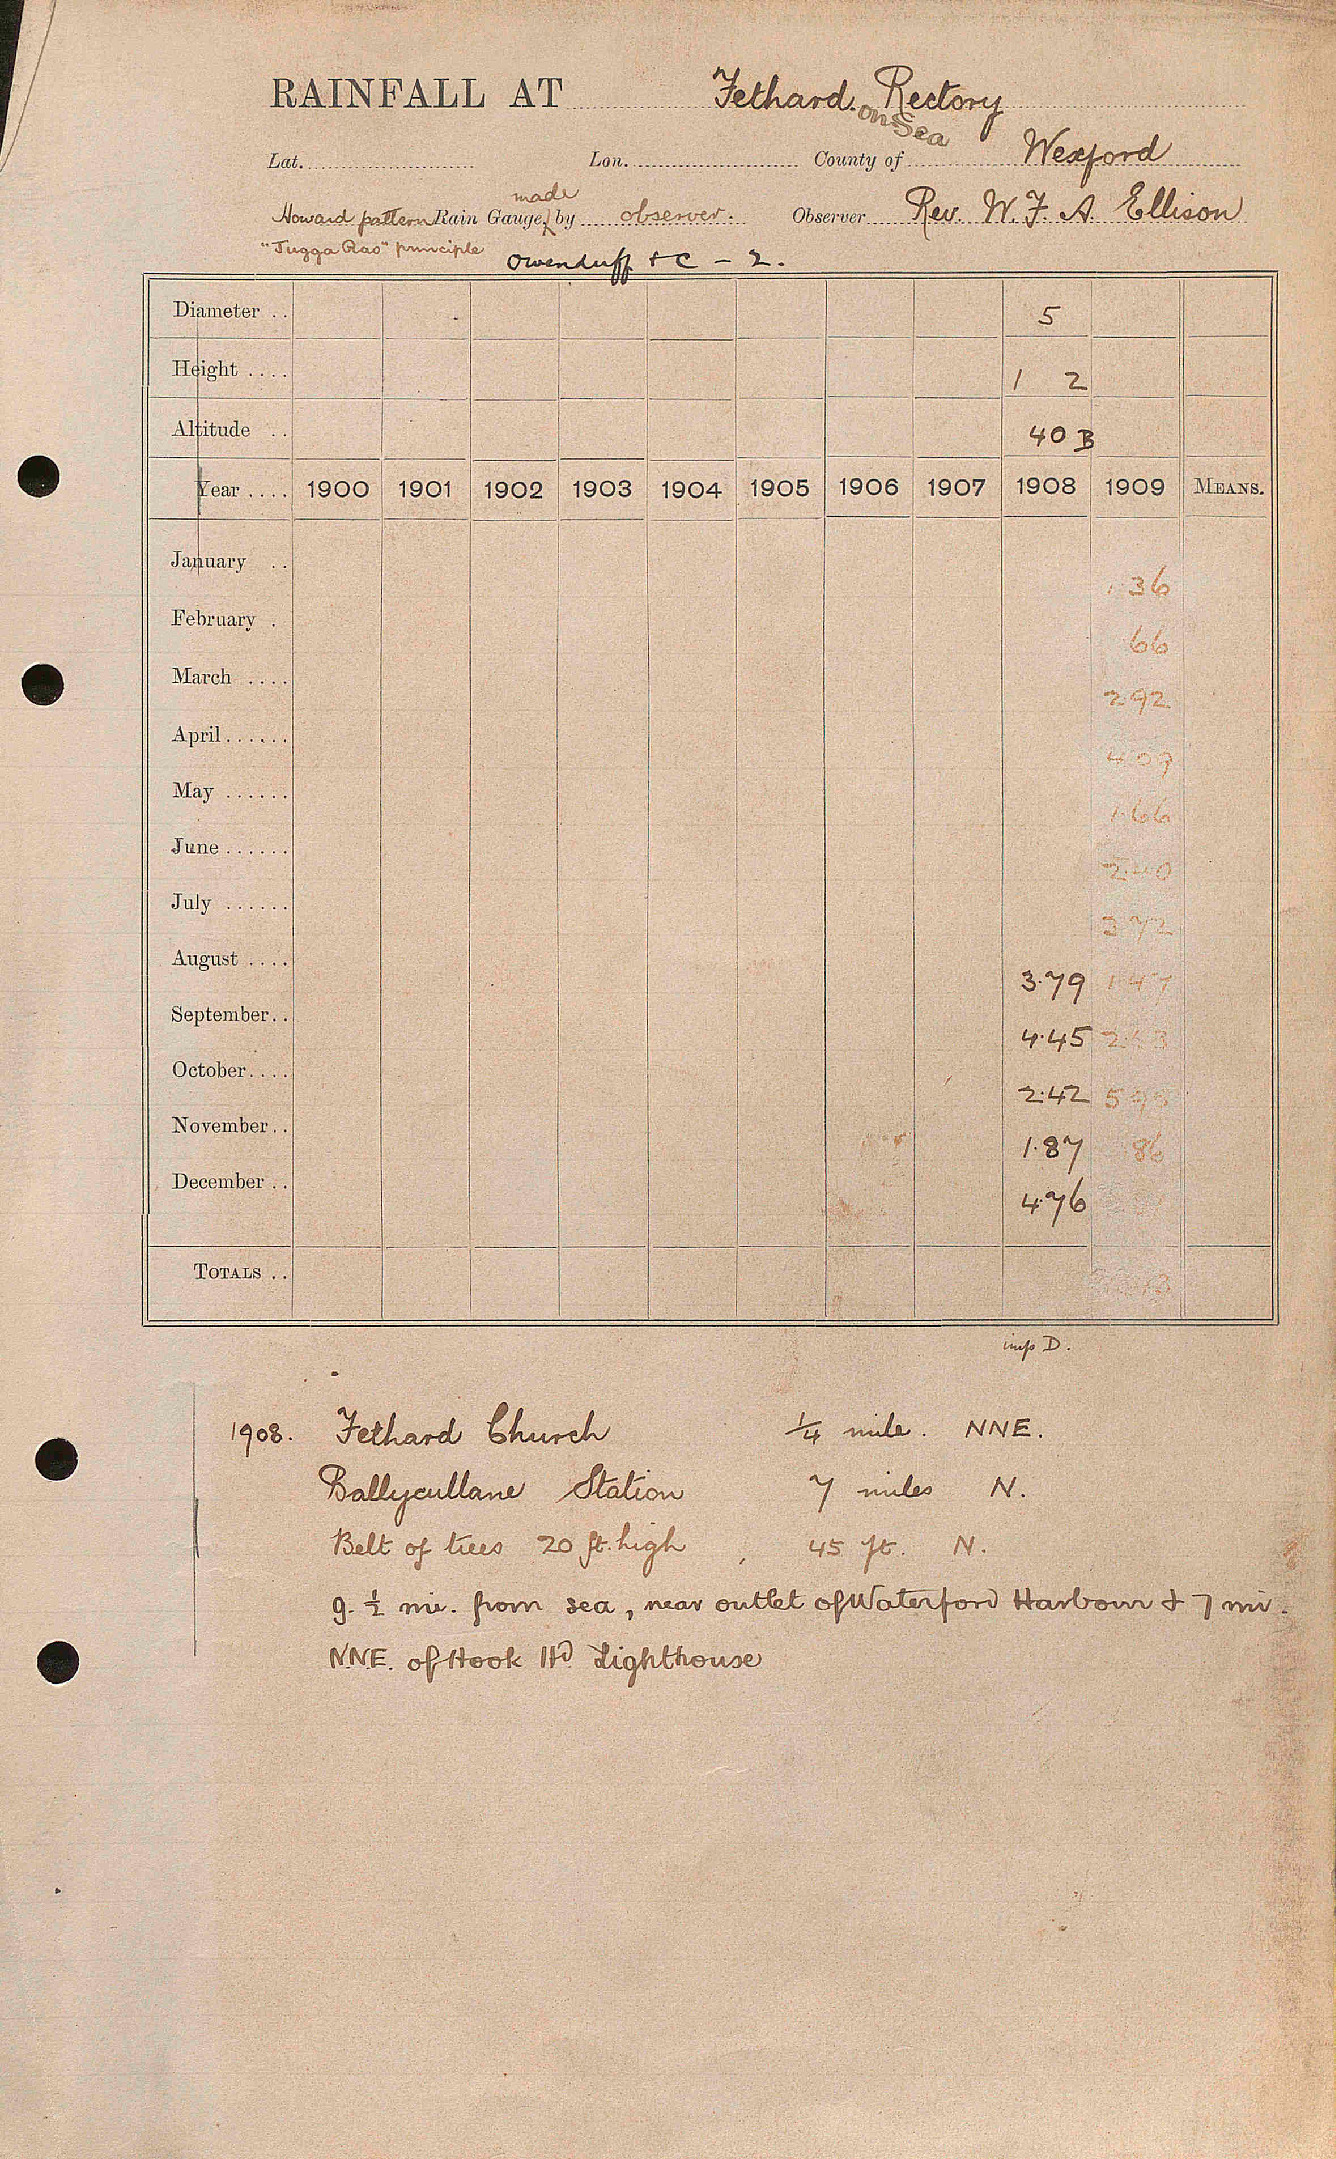 RAINFALL AT Fethard on Sea Rectory
Lat. Lon. County of Wexford
Howard pattern Rain Gauge, made by observer. Observer Rev. W. F. A. Ellison
"Jugga Rao" principle
Owenduff + C - 2.
Diameter .. 5
Height .... 1 2
Altitude .. 40 B
Year .... 1900 1901 1902 1903 1904 1905 1906 1907 1908 1909 MEANS.
January .. 1.36
February . 66
March .... 2.92
April ...... 4.09
May ...... 1.66
June ...... 2.40
July ...... 3.72
August .... 3.79 1.47
September .. 4.45
October .... 2.42
November .. 1.87 86
December .. 4.76
TOTALS ..
imp D.
1908. Fethard Church 1/4 mile. NNE.
Ballycullane Station 7 miles N.
Belt of trees 20 ft. high, 45 ft. N.
g. 1/2 mi. from sea, near outlet of Waterford Harbour & 7 mi.
NNE. of Hook Hd Lighthouse